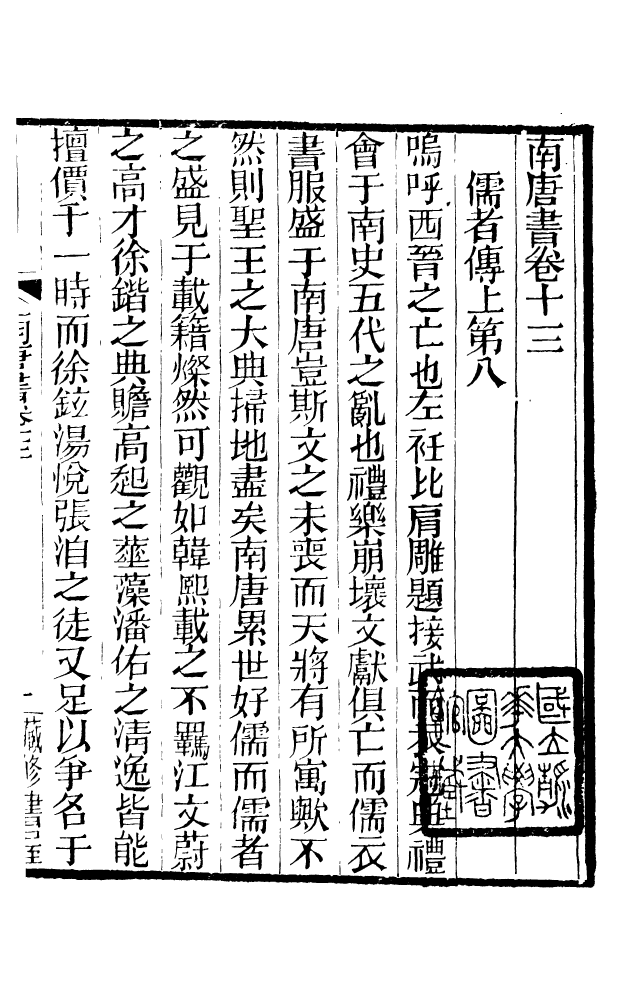 南唐書卷十三
儒者傳上第八
嗚呼西晉之亡也左衽比肩雕題接武而衣冠典禮
會于南史五代之亂也禮樂崩壞文獻俱亡而儒衣
書服盛于南唐豈斯文之未喪而天將有所寓歟不
然則聖王之大典掃地盡矣南唐累世好儒而儒者
之盛見于載籍燦然可觀如韓熙載之不羈江文蔚
之高才徐鍇之典贍高越之華藻潘佑之清逸皆能
擅價于一時而徐鉉湯悅張洎之徒又足以爭名于
南唐書卷十三
一
藏修書屋
國立清華大學圖書館藏